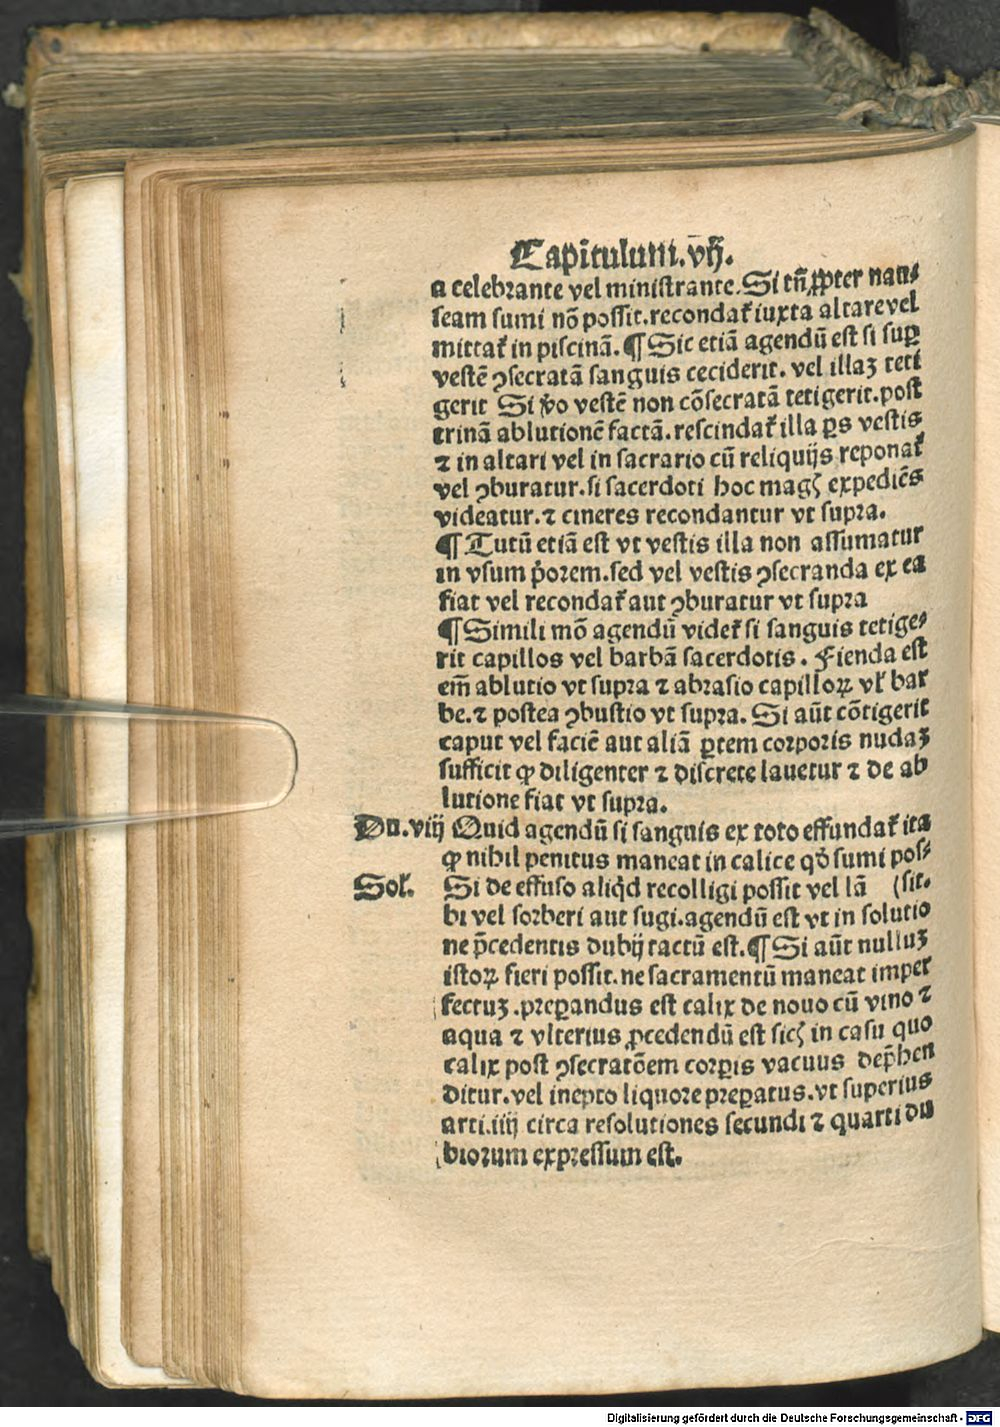 Capitulum.vij.
a celebrante vel ministrante. Si tn̄ ꝓpter nau⸗
seam sumi nō possit. recondat̄ iuxta altare vel
mittat̄ in piscinā. ¶ Sic etiā agendū est si suꝑ
vestē ꝯsecratā sanguis ceciderit. vel illaꝫ teti
gerit Si v̊o vestē non cōsecratā tetigerit. post
trinā ablutionē factā. rescindat̄ illa ꝑs vestis
⁊ in altari vel in sacrario cū reliquijs reponat̄
vel ꝯburatur. si sacerdoti hoc magꝭ expediēs
videatur. ⁊ cineres recondantur vt supra.
¶ Tutū etiā est vt vestis illa non assumatur
in vsum p̄orem. sed vel vestis ꝯsecranda ex ea
fiat vel recondat̄ aut ꝯburatur vt supra
¶ Simili mō agendū videt̄ si sanguis tetige⸗
rit capillos vel barbā sacerdotis. Fienda est
em̄ ablutio vt supra ⁊ abrasio capilloꝝ vl̄ bar
be. ⁊ postea ꝯbustio vt supra. Si aūt cōtigerit
caput vel faciē aut aliā ꝑtem corporis nudaꝫ
sufficit ꝙ diligenter ⁊ discrete lauetur ⁊ de ab
lutione fiat vt supra.
Du.viij Quid agendū si sanguis ex toto effundat̄ ita
ꝙ nihil penitus maneat in calice qd̄ sumi pos⸗
Sol̄. Si de effuso aliq̇d recolligi possit vel lā (sit.
bi vel sorberi aut sugi. agendū est vt in solutio
ne p̄cedentis dubij tactū est. ¶ Si aūt nulluꝫ
istoꝝ fieri possit. ne sacramentū maneat imper
fectuꝫ. preꝑandus est calix de nouo cū vino ⁊
aqua ⁊ vlterius ꝓcedendū est sicꝭ in casu quo
calix post ꝯsecratōem corꝑis vacuus dep̄hen
ditur. vel inepto liquore preꝑatus. vt superius
arti.iiij circa resolutiones secundi ⁊ quarti du
biorum expressum est.
Digitalisierung gefördert durch die Deutsche Forschungsgemeinschaft - DFG